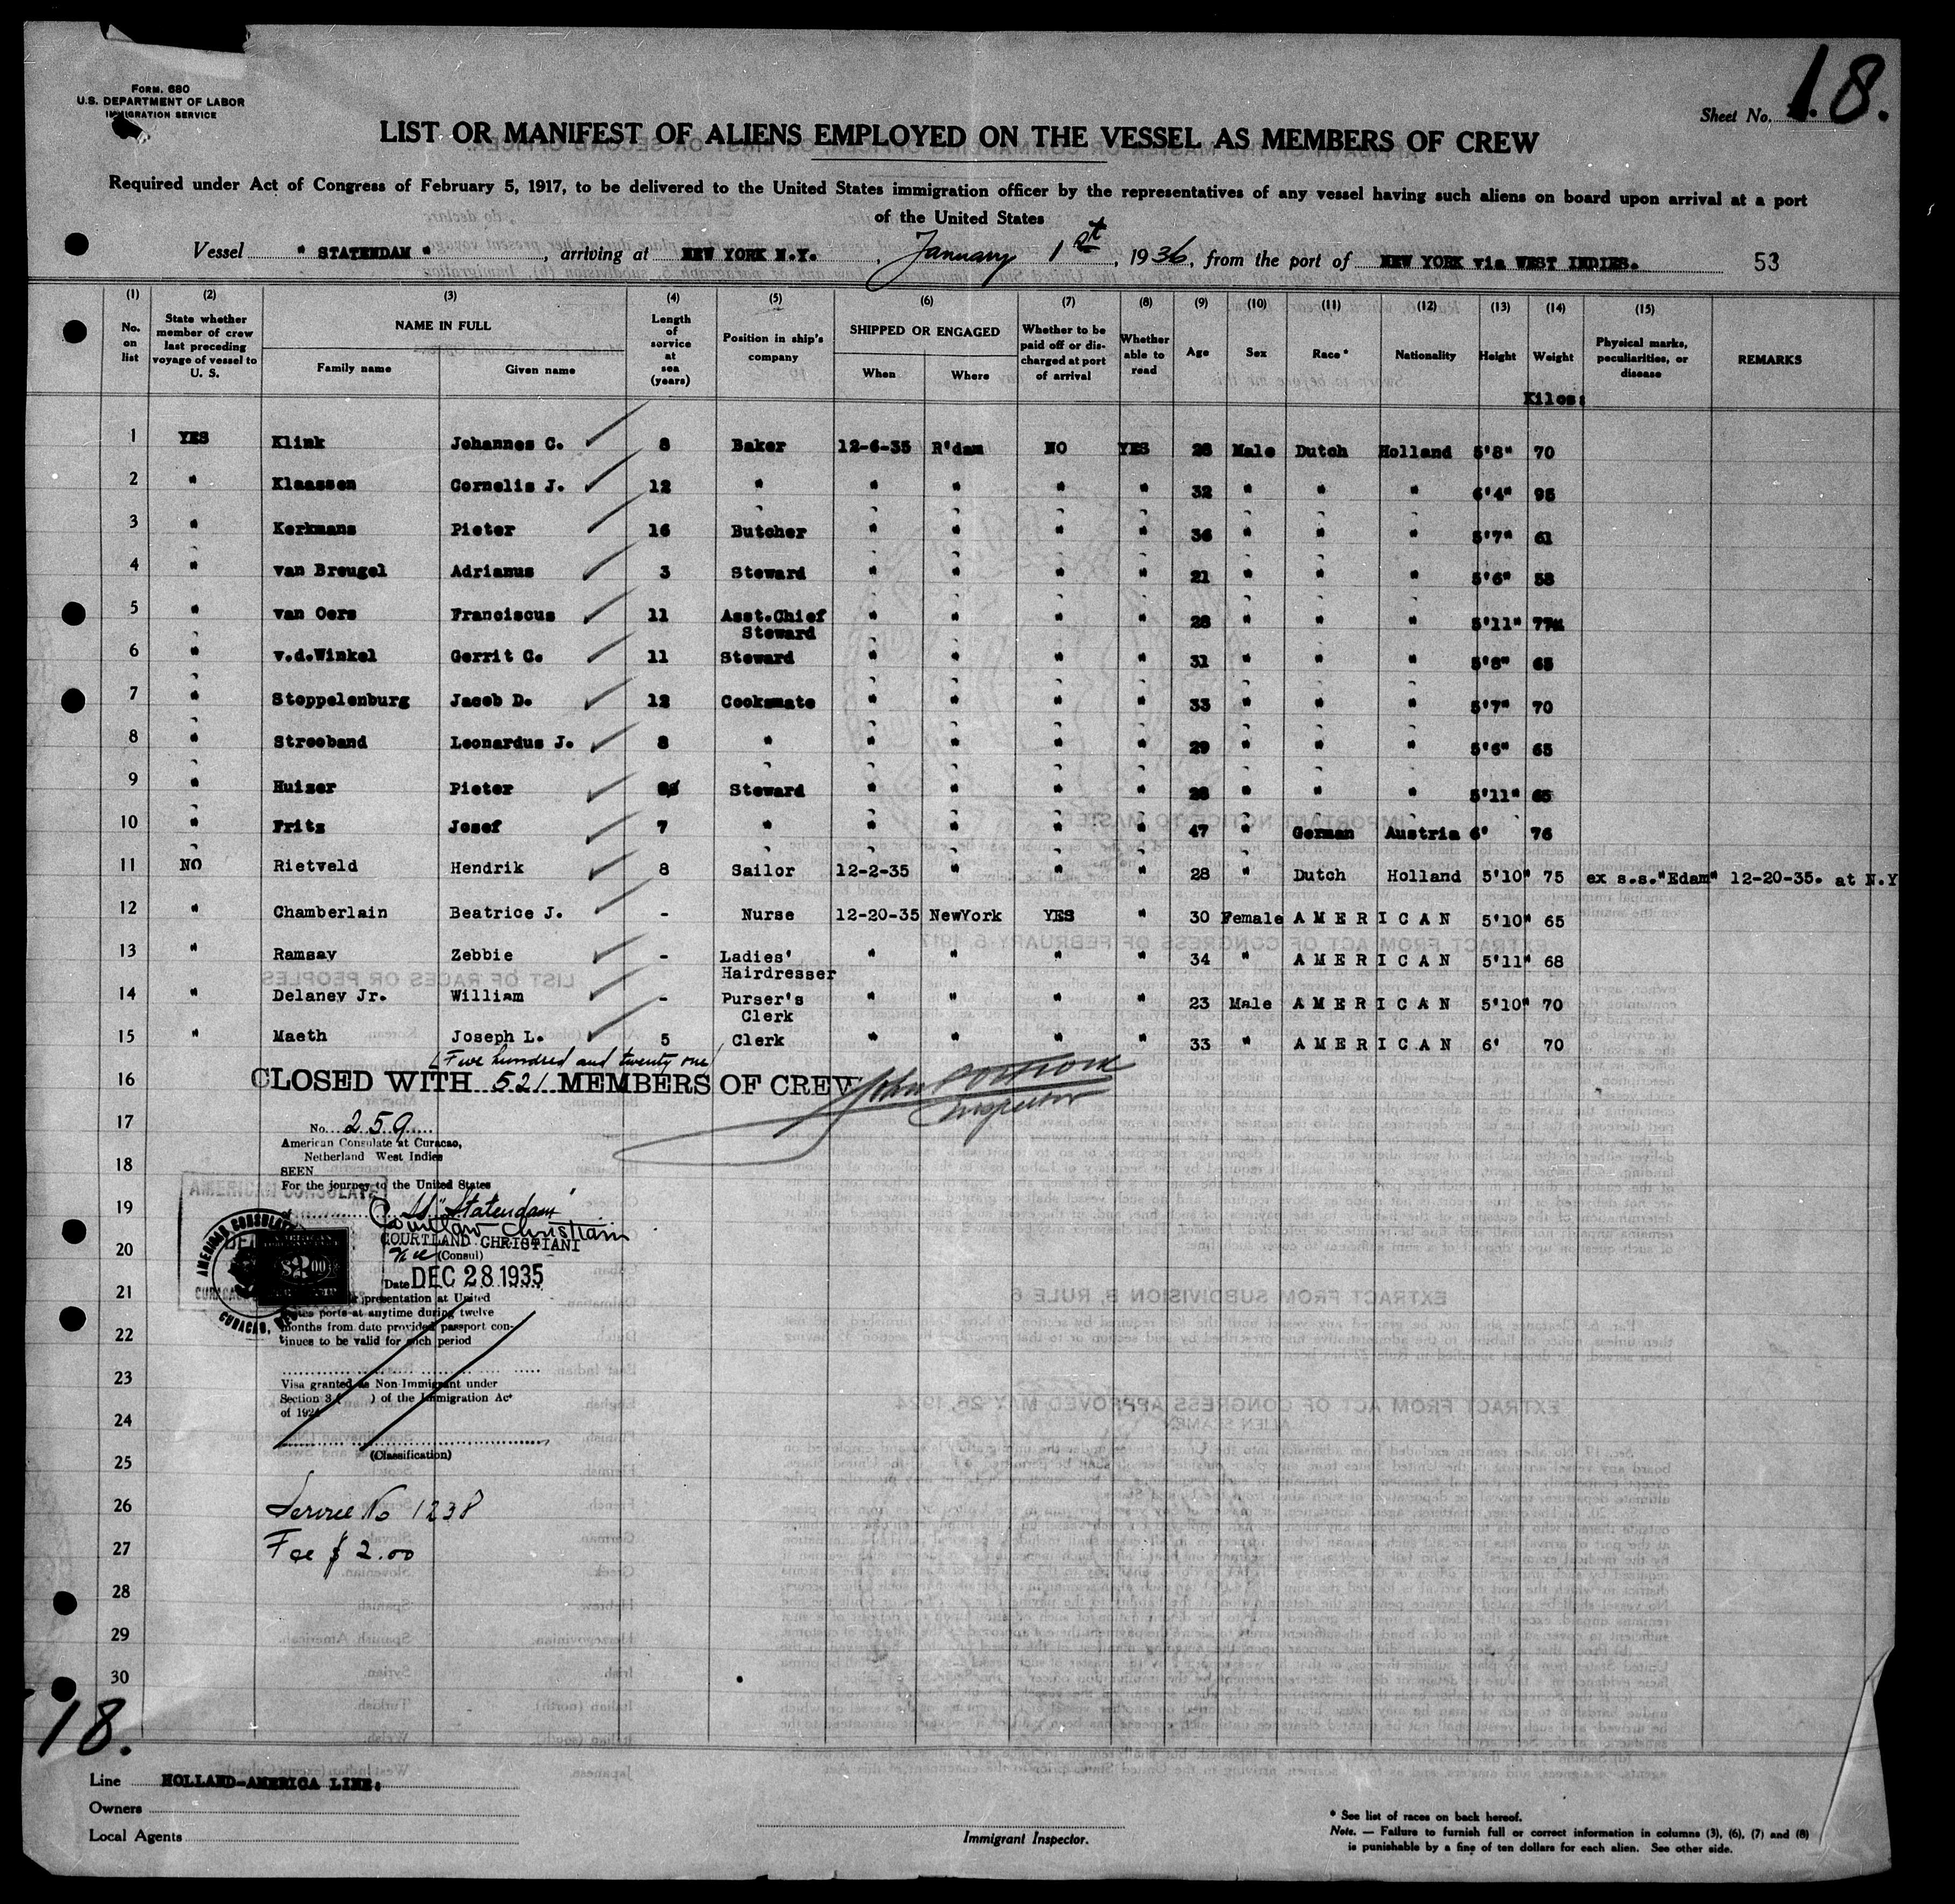 FORM. 680
U.S. DEPARTMENT OF LABOR
IMMIGRATION SERVICE
Sheet No. 18.
LIST OR MANIFEST OF ALIENS EMPLOYED ON THE VESSEL AS MEMBERS OF CREW
Required under Act of Congress of February 5, 1917, to be delivered to the United States immigration officer by the representatives of any vessel having such aliens on board upon arrival at a port
of the United States
Vessel " STATENDAM " , arriving at NEW YORK N.Y. , January 1st , 1936, from the port of NEW YORK via WEST INDIES. 53
(1) (2) (3) (4) (5) (6) (7) (8) (9) (10) (11) (12) (13) (14) (15)
No. on list State whether member of crew last preceding voyage of vessel to U. S. NAME IN FULL Family name Given name Length of service at sea (years) Position in ship's company SHIPPED OR ENGAGED When Where Whether to be paid off or discharged at port of arrival Whether able to read Age Sex Race * Nationality Height Weight Physical marks, peculiarities, or disease REMARKS
Kilos:
1 YES Klink Johannes C. 8 Baker 12-6-35 R'dam NO YES 28 Male Dutch Holland 5'8" 70
2 " Klaassen Cornelis J. 12 " " " " " 32 " " " 6'4" 95
3 " Kerkmans Pieter 16 Butcher " " " " 36 " " " 5'7" 61
4 " van Breugel Adrianus 3 Steward " " " " 21 " " " 5'6" 58
5 " van Oers Franciscus 11 Asst.Chief Steward " " " " 28 " " " 5'11" 77
6 " v.d.Winkel Gerrit C. 11 Steward " " " " 31 " " " 5'8" 65
7 " Stoppelenburg Jacob D. 12 Cooksmate " " " " 33 " " " 5'7" 70
8 " Streeband Leonardus J. 8 " " " " " 29 " " " 5'6" 65
9 " Huizer Pieter Steward " " " " 28 " " " 5'11" 65
10 " Fritz Josef 7 " " " " " 47 " German Austria 6' 76
11 NO Rietveld Hendrik 8 Sailor 12-2-35 " " " 28 " Dutch Holland 5'10" 75 ex s.s."Edam" 12-20-35. at N.Y
12 " Chamberlain Beatrice J. - Nurse 12-20-35 NewYork YES " 30 Female AMERICAN 5'10" 65
13 " Ramsay Zebbie - Ladies' Hairdresser " " " " 34 " AMERICAN 5'11" 68
14 " Delaney Jr. William - Purser's Clerk " " " " 23 Male AMERICAN 5'10" 70
15 " Maeth Joseph L. 5 Clerk " " " " 33 " AMERICAN 6' 70
(Five hundred and twenty one)
16 CLOSED WITH 521 MEMBERS OF CREW
Inspector
17
No. 259
American Consulate at Curacao,
Netherland West Indies
18
SEEN
For the journey to the United States
AMERICAN CONSULATE
19
SS "Statendam"
Courtland Christiani
COURTLAND CHRISTIANI
20
(Consul)
Date DEC 28 1935
21
presentation at United
ports at anytime during twelve
months from date provided passport con-
22
tinues to be valid for such period
23
Visa granted as Non-Immigrant under
Section 3 ( ) of the Immigration Act
of 1924
24
(Classification)
25
26 Service No 1238
27 Fee $ 2.00
28
29
30
18.
Line HOLLAND-AMERICA LINE:
Owners
Local Agents
Immigrant Inspector.
* See list of races on back hereof.
Note. — Failure to furnish full or correct information in columns (3), (6), (7) and (8)
is punishable by a fine of ten dollars for each alien. See other side.